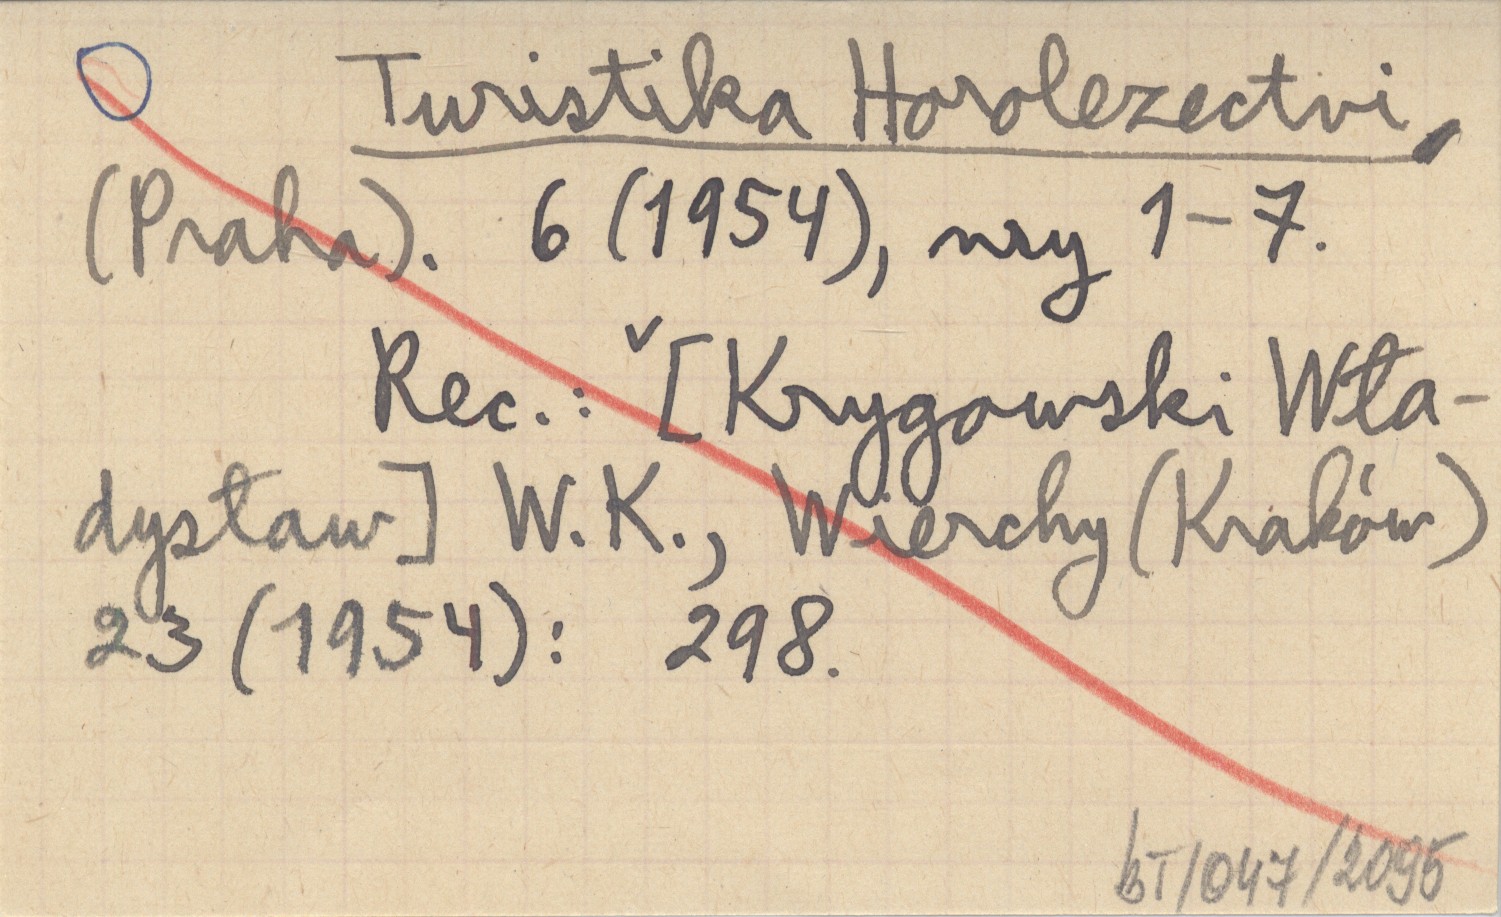 Turistika Horolezectvi,
(Praha). 6 (1954), nry 1-7.
Rec.: [Krygowski Wła-
dysław] W.K., Wierchy (Kraków)
23 (1954): 298.
bT/047/2095